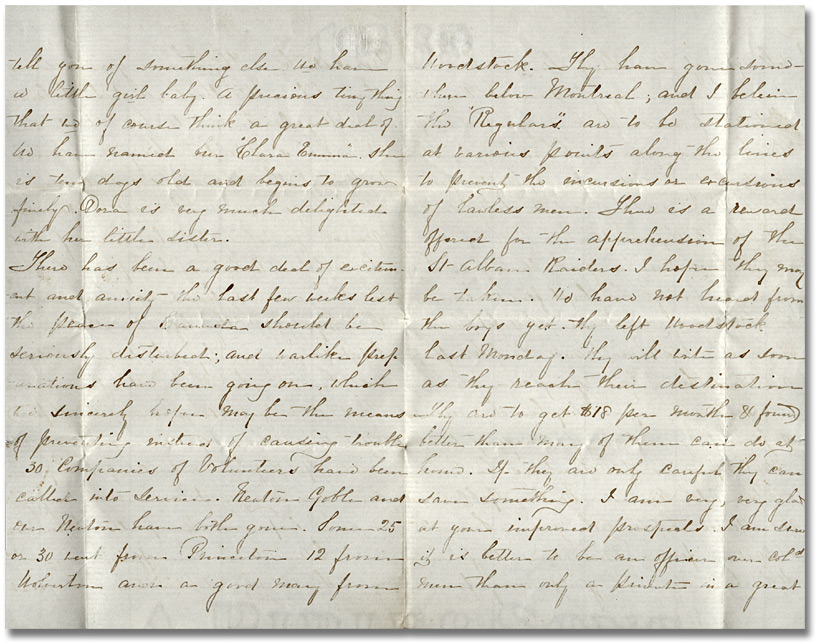 tell you of something else We have
a little girl baby. A precious tiny thing
that we of course think a great deal of
We have named her "Clara Emma". She
is ten days old and begins to grow
finely. Dora is very much delighted
with her little sister.
There has been a good deal of excitem-
ent and anxiety the last few weeks lest
the peace of Canada should be
seriously disturbed; and warlike prep-
arations have been going on, which
we sincerely hope may be the means
of preventing instead of causing trouble
30 Companies of Volunteers have been
called into Service. Newton Goble and
our Newton have both gone. Some 25
or 30 went from Princeton 12 from
Wolverton and a good many from
Woodstock. They have gone some-
where below Montreal; and I believe
the "Regulars" are to be stationed
at various points along the lines
to prevent the incursions or excursions
of lawless men. There is a reward
offered for the apprehension of the
St Albans Raiders. I hope they may
be taken. We have not heard from
the boys yet. They left Woodstock
last Monday. They will write as soon
as they reach their destination
They are to get $18 per month (& found)
better than many of them can do at
home. If they are only careful they can
save something. I am very, very glad
at your improved prospects. I am sure
it is better to be an officer over cold
men than only a private in a great